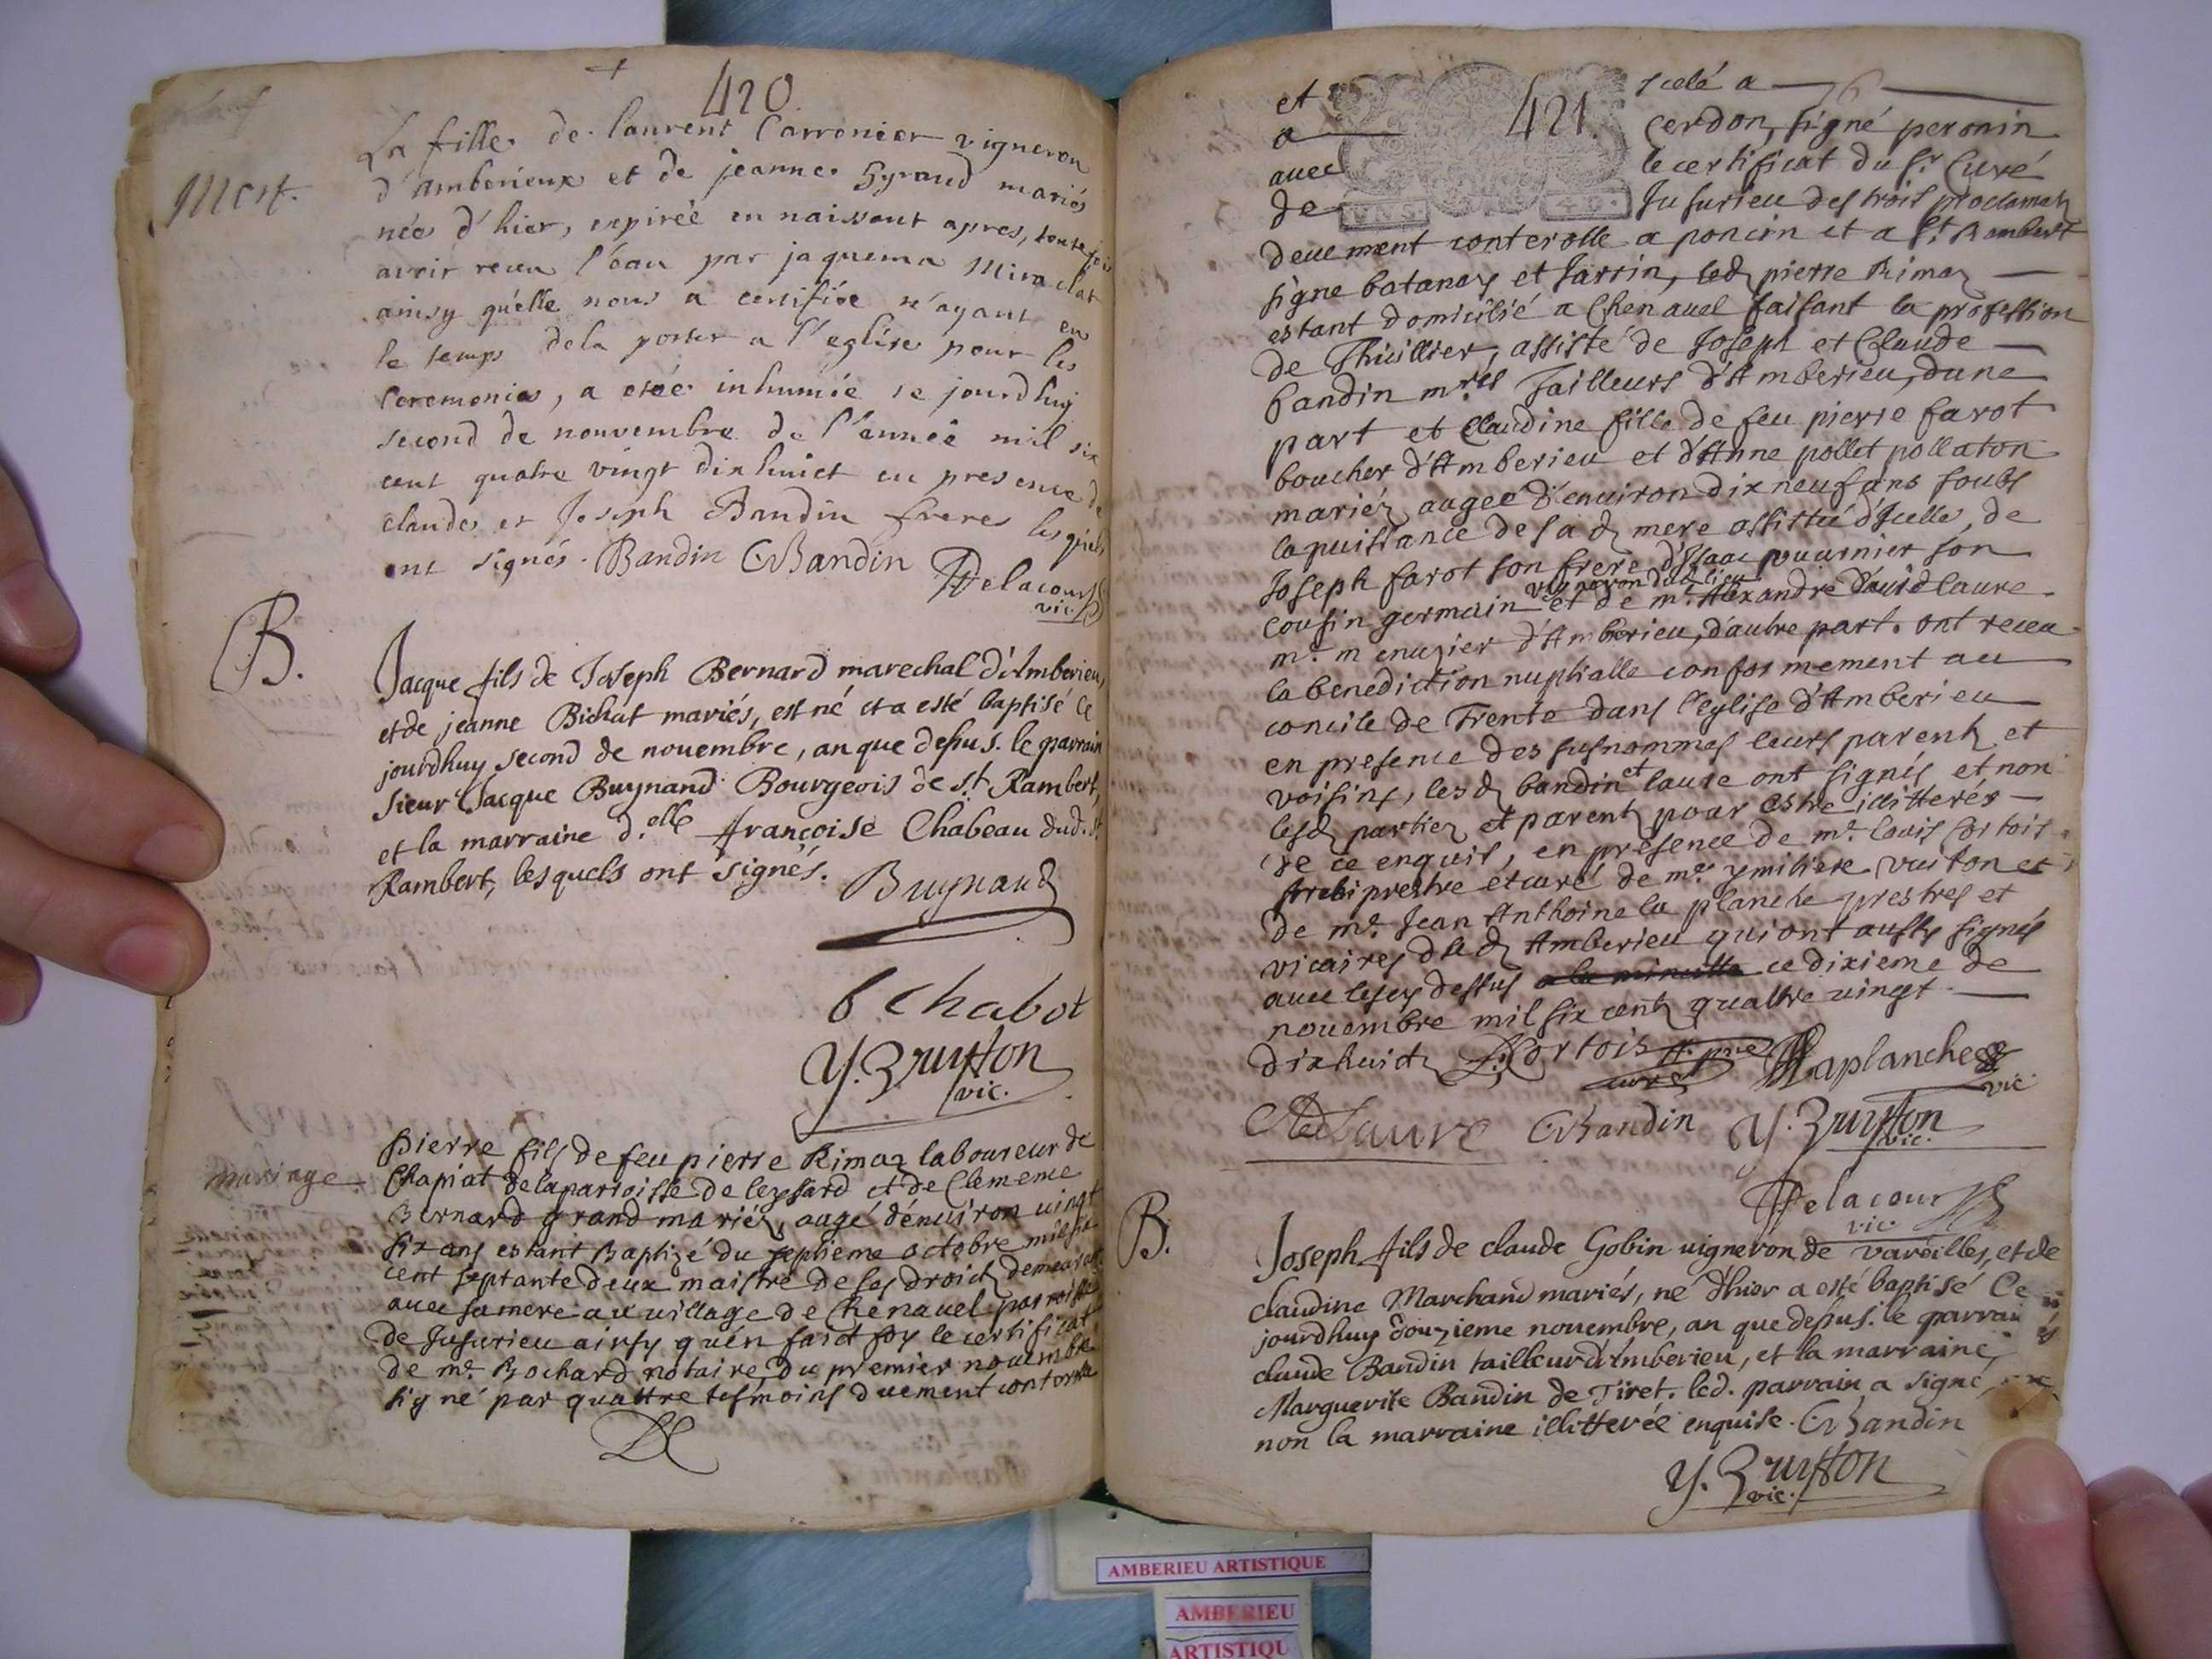 420.
Mort.
La fille de laurent Carronier vigneron
d'amberieux et de jeanne Gyraud mariés
née d'hier, expirée en naissant apres, toutefois
avoir receu l'eau par jaquema Miraclat
ainsy qu'elle nous a certifiée n'ayant eu
le temps dela porter a l'eglise pour les
Ceremonies, a estée inhumée ce jourdhuy
second de nouvembre de l'année mil six
cent quatre vingt dixhuict en presence de
claude et Joseph Bandin freres lesquels
ont signés. Bandin CBandin Delacour
vic.
B.
Jacque fils de Joseph Bernard marechal d'Amberieu,
et de jeanne Bichat mariés, est né et a esté baptisé Ce
jourdhuy second de nouembre, an que dessus. le parrain
Sieur Jacque Buynand Bourgeois de st. Rambert,
et la marraine d.elle françoise Chabeau dud. st.
Rambert, lesquels ont signés. Buynand
f Chabot
y. Bruyston
vic.
mariage
pierre fils de feu pierre Rimaz laboureur de
Chapiat delaparroisse de leyssard et de Clemence
Bernard grand mariéz, aagé d'enuiron uingt
six ans estant Baptizé du septieme octobre mil six
cent septante deux maistre de ses droictz demeurant
auec samere au uillage de Chenauel parroisse
de Jusurieu ainsy qu'en faict foy le certificat
de me. Bochard notaire du premier nouembre
signé par quattre tesmoins duement controlle
421.
et scelé a
a cerdon, signé peronin
auec le certificat du sr. Curé
de Jusurieu des trois proclamaõn
deuement conterolle a poncin et a st. Rambert
signe batanay et Jarrin, led pierre Rimaz
estant domicilié a Chenauel faisant la profession
de Thuillier, assisté de Joseph et Claude
bandin mres Tailleurs d'Amberieu, dune
part et Claudine fille de feu pierre farot
boucher d'Amberieu et d'Anne pollet pollaton
mariéz aagee d'enuiron dix neuf ans soubs
la puissance de sad mere assistée d'Icelle, de
Joseph farot son frere d'Isaac vuarnier son
vigneron dud lieu
cousin germain et de me. Alexandre Dauid laure
me. menuzier d'Amberieu, d'autre part. ont receu
la benediction nuptialle conformement au
concile de Trente dans l'eglise d'Amberieu
en presence des susnommes leurs parentz et
voisins, lesd bandin et laure ont signés et non
lesd partiez et parentz pour estre illitterés
de ce enquis, en presence de me. louis cortois
Archiprestre et curé de me. ymiliere vuiton et
de me. Jean Anthoine la planche prestres et
vicaires dud Amberieu qui ont aussy signés
auec lesey dessus a la minutte ce dixieme de
nouembre mil six centz quattre uingt
dixhuict L. Cortois A. pre Laplanche
curé vic
ADLaure CBandin y. Bruyston
vic.
Delacour
vic.
B.
Joseph fils de claude Gobin uigneron de vareilles, et de
claudine Marchand mariés, né d'hier a esté baptisé Ce
jourdhuy douzieme nouembre, an que dessus. le parrain
claude Bandin tailleur d'Amberieu, et la marraine
Marguerite Bandin de Tiret. led. parrain a signé,
non la marraine illitterée enquise. CBandin
y. Bruyston
vic.
AMBERIEU ARTISTIQUE
AMBERIEU
ARTISTIQU